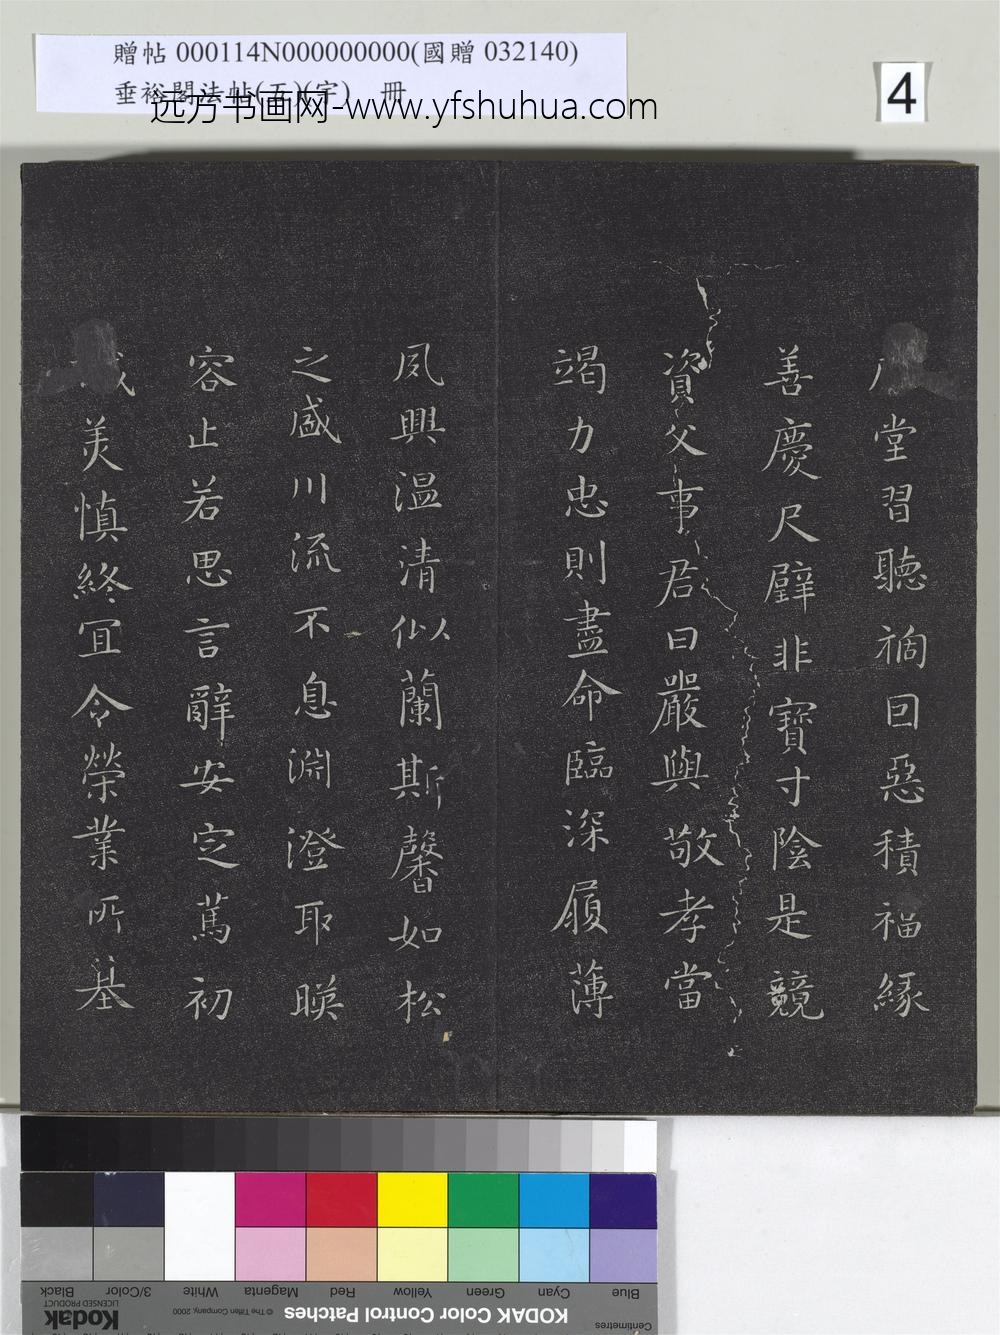 贈帖 000114N000000000(國贈 032140)
垂裕閣法帖(五)(宇) 冊
远方书画网-www.yfshuhua.com
4
堂習聽禍因惡積福緣
善慶尺璧非寶寸陰是競
資父事君曰嚴與敬孝當
竭力忠則盡命臨深履薄
夙興温凊似蘭斯馨如松
之盛川流不息淵澄取暎
容止若思言辭安定篤初
美慎終宜令榮業所基
Blue Cyan Green Yellow Red Magenta White 3/Color Black
Centimetres
KODAK Color Control Patches
© The Tiffen Company, 2000
Kodak
LICENSED PRODUCT